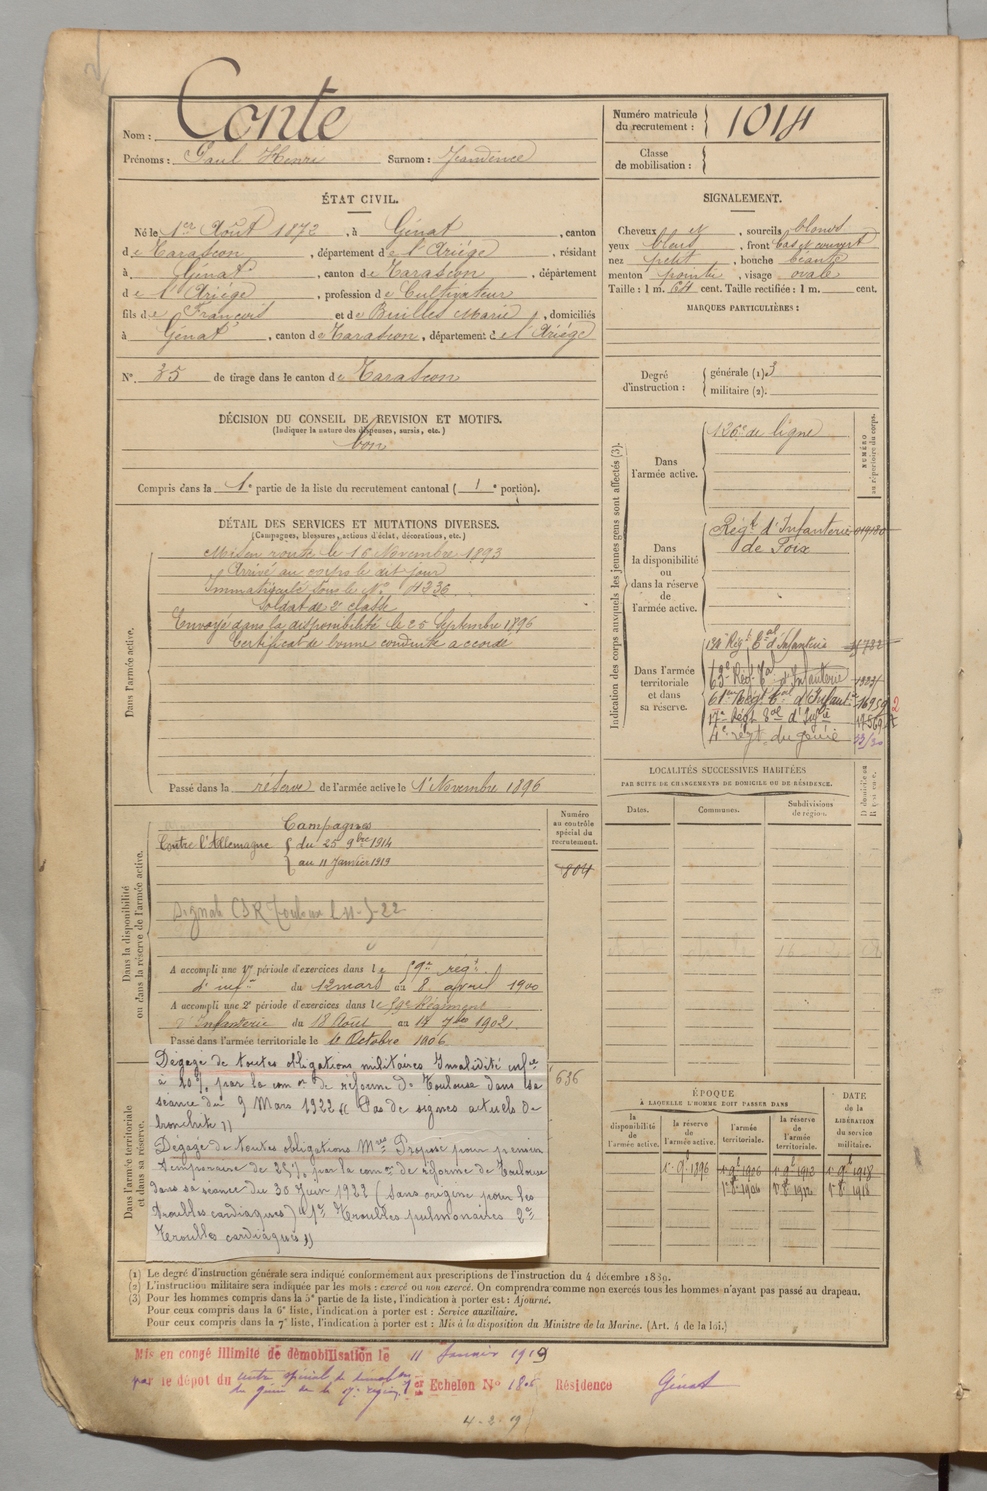 Nom : Conte
Prénoms : Paul Henri Surnom : Jeandence
Numéro matricule du recrutement : 1014
Classe de mobilisation :
ÉTAT CIVIL.
Né le 1er Août 1872, à Génat, canton
de Tarascon, département de l'Ariége, résidant
à Génat, canton de Tarascon, département
de l'Ariége, profession de Cultivateur
fils de François et de Builles Marie, domiciliés
à Génat, canton de Tarascon, département de l'Ariége
N° 35 de tirage dans le canton de Tarascon
DÉCISION DU CONSEIL DE REVISION ET MOTIFS.
(Indiquer la nature des dispenses, sursis, etc.)
bon
Compris dans la 1e partie de la liste du recrutement cantonal ( 1e portion).
DÉTAIL DES SERVICES ET MUTATIONS DIVERSES.
(Campagnes, blessures, actions d'éclat, décorations, etc.)
Dans l'armée active.
Mis en route le 16 Novembre 1893
Arrivé au corps le dit jour
Immatriculé sous le N° 4336.
Soldat de 2e classe
Envoyé dans la disponibilité le 25 Septembre 1896
Certificat de bonne conduite accordé
Passé dans la réserve de l'armée active le 1er Novembre 1896
Dans la disponibilité
ou dans la réserve de l'armée active.
Campagnes
Contre l'Allemagne du 25 9bre 1914
au 11 Janvier 1919
Numéro au contrôle spécial du recrutement.
804
A accompli une 1re période d'exercices dans le 59e régt
d'infie du 12 mars au 8 avril 1900
A accompli une 2e période d'exercices dans le 59e Régiment
d'Infanterie du 18 Août au 14 7bre 1902.
Passé dans l'armée territoriale le 1er Octobre 1906.
Dans l'armée territoriale
et dans sa réserve.
636
Dégagé de toutes obligations militaires Invalidité infre
à 10% par la comon de réforme de Toulouse dans sa
séance du 9 Mars 1922 « Pas de signes actuels de
bronchite »
Dégagé de toutes obligations Mres Proposé pour pension
temporaire de 25% par la comon de réforme de Toulouse
dans sa séance du 30 Juin 1922 (sans origine pour les
troubles cardiaques) « 1er Troubles pulmonaires 2e
Troubles cardiaques »
SIGNALEMENT.
Cheveux et, sourcils blonds
yeux bleus, front bas et couvert
nez petit, bouche béante
menton pointu, visage ovale
Taille : 1 m. 64 cent. Taille rectifiée : 1 m. cent.
MARQUES PARTICULIÈRES :
Degré d'instruction : générale (1). 3
militaire (2).
Indication des corps auxquels les jeunes gens sont affectés (3).
NUMÉRO au répertoire du corps.
Dans l'armée active.
126e de ligne
Dans la disponibilité ou dans la réserve de l'armée active.
Régt d'Infanterie
de Foix
Dans l'armée territoriale et dans sa réserve.
63e Régt Tal d'Infanterie
61e Régt Tal d'Infanterie 16959
17e Régt Tal d'Infie
4e régt du génie
LOCALITÉS SUCCESSIVES HABITÉES
PAR SUITE DE CHANGEMENTS DE DOMICILE OU DE RÉSIDENCE.
Dates. Communes. Subdivisions de région. D domicile ou R résidence.
ÉPOQUE
À LAQUELLE L'HOMME DOIT PASSER DANS
DATE de la LIBÉRATION du service militaire.
la disponibilité de l'armée active. la réserve de l'armée active. l'armée territoriale. la réserve de l'armée territoriale.
1er 9e 1896 1er 9e 1906 1er 9e 1912 1er 9e 1918
1er 8e 1906 1er 8e 1912 1er 8e 1918
(1) Le degré d'instruction générale sera indiqué conformément aux prescriptions de l'instruction du 4 décembre 1889.
(2) L'instruction militaire sera indiquée par les mots : exercé ou non exercé. On comprendra comme non exercés tous les hommes n'ayant pas passé au drapeau.
(3) Pour les hommes compris dans la 5e partie de la liste, l'indication à porter est : Ajourné.
Pour ceux compris dans la 6e liste, l'indication à porter est : Service auxiliaire.
Pour ceux compris dans la 7e liste, l'indication à porter est : Mis à la disposition du Ministre de la Marine. (Art. 4 de la loi.)
Mis en congé illimité de démobilisation le 11 Janvier 1919
par le dépôt du centre spécial de démobon
du génie de la 17e région 1er Echelon N° 1806 Résidence Génat
4-2-19